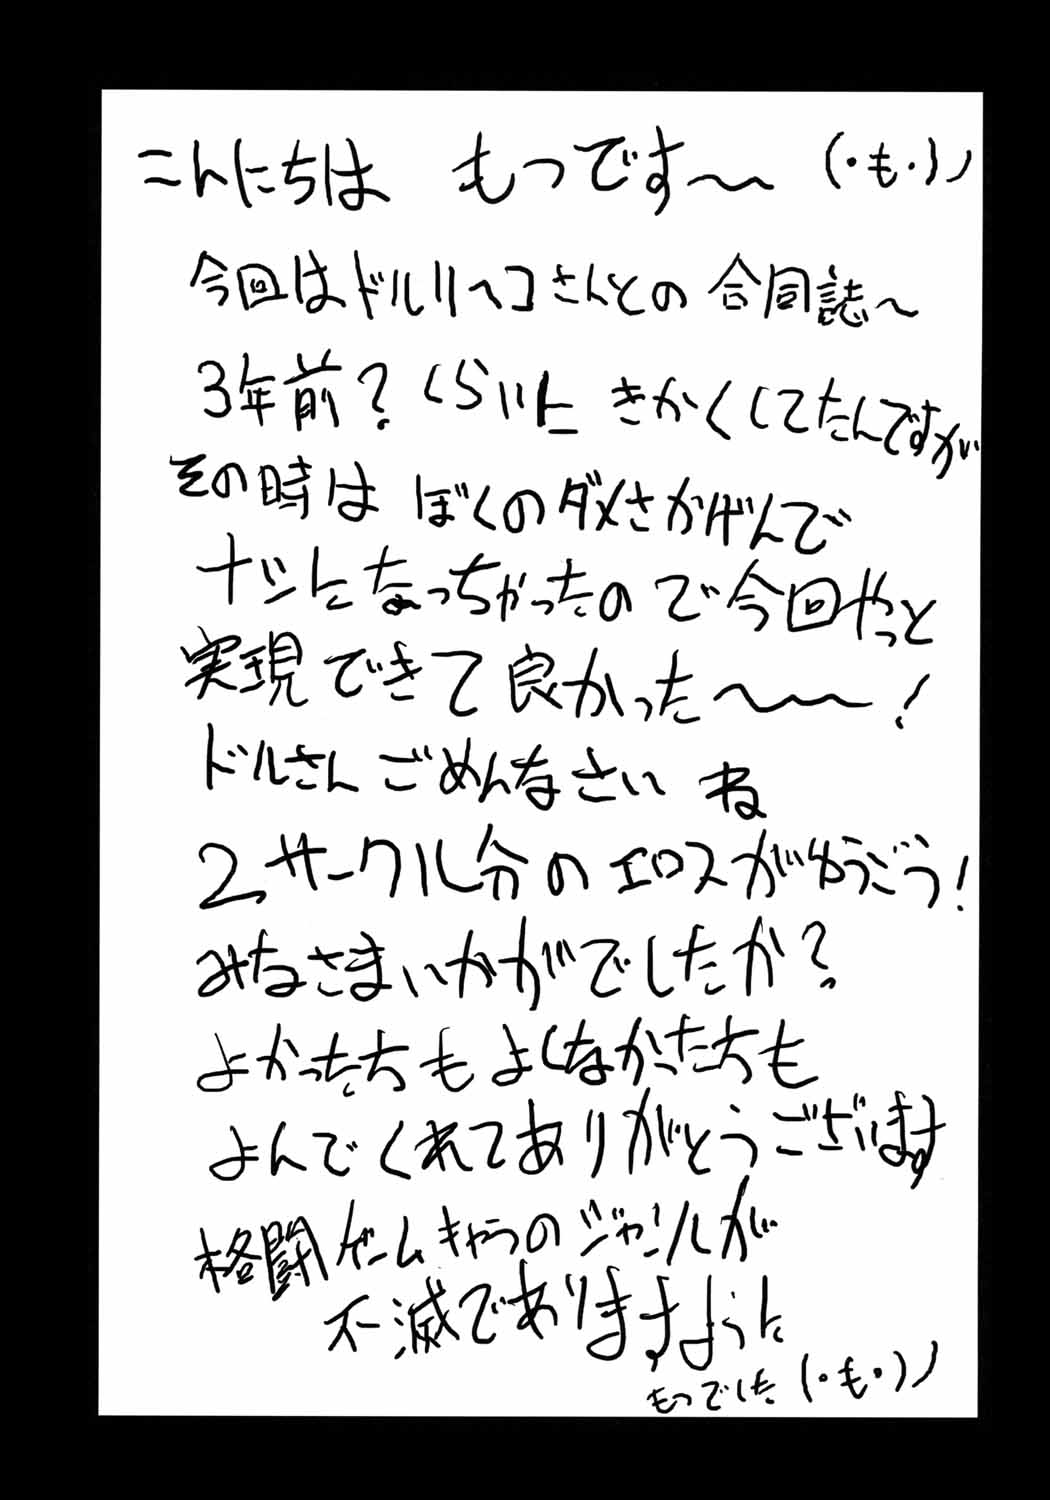 こんにちは もつです〜 (・も・)ノ
今回はドルリヘコさんとの合同誌〜
3年前?くらいに きかくしてたんですが
その時は ぼくのダメさかげんで
ナシになっちゃったので今回やっと
実現できて良かった〜〜!
ドルさん ごめんなさい ね
2サークル分のエロスがゆうごう!
みなさまいかがでしたか?
よかったちも よくなかたちも
よんでくれてありがとうございます
格闘ゲームキャラのジャンルが
不滅でありますように
もつでした (・も・)ノ